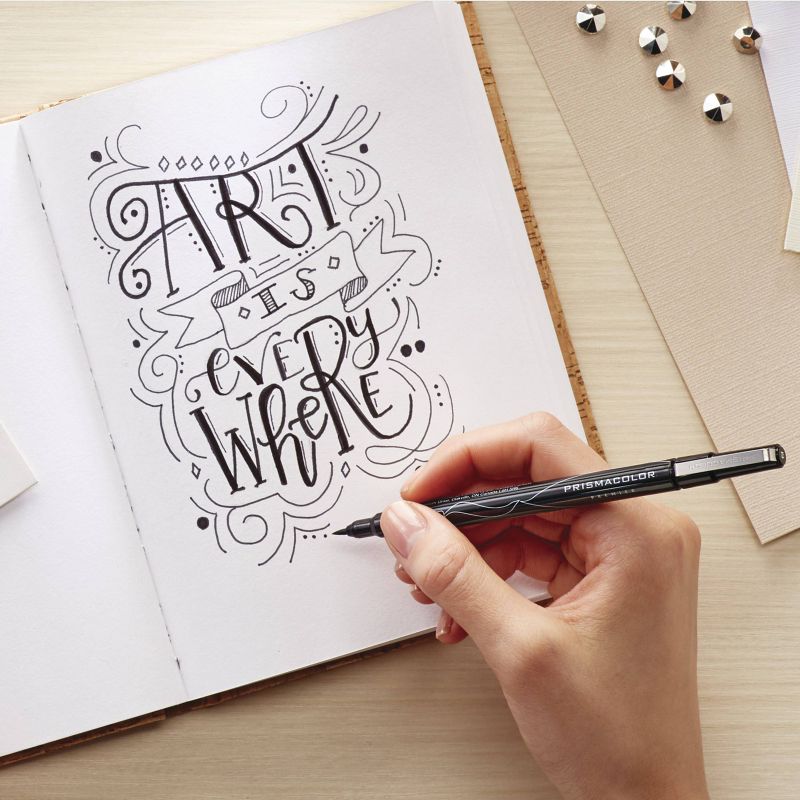 ART
IS
eVERY
WheRE
PRISMACOLOR
PREMIER